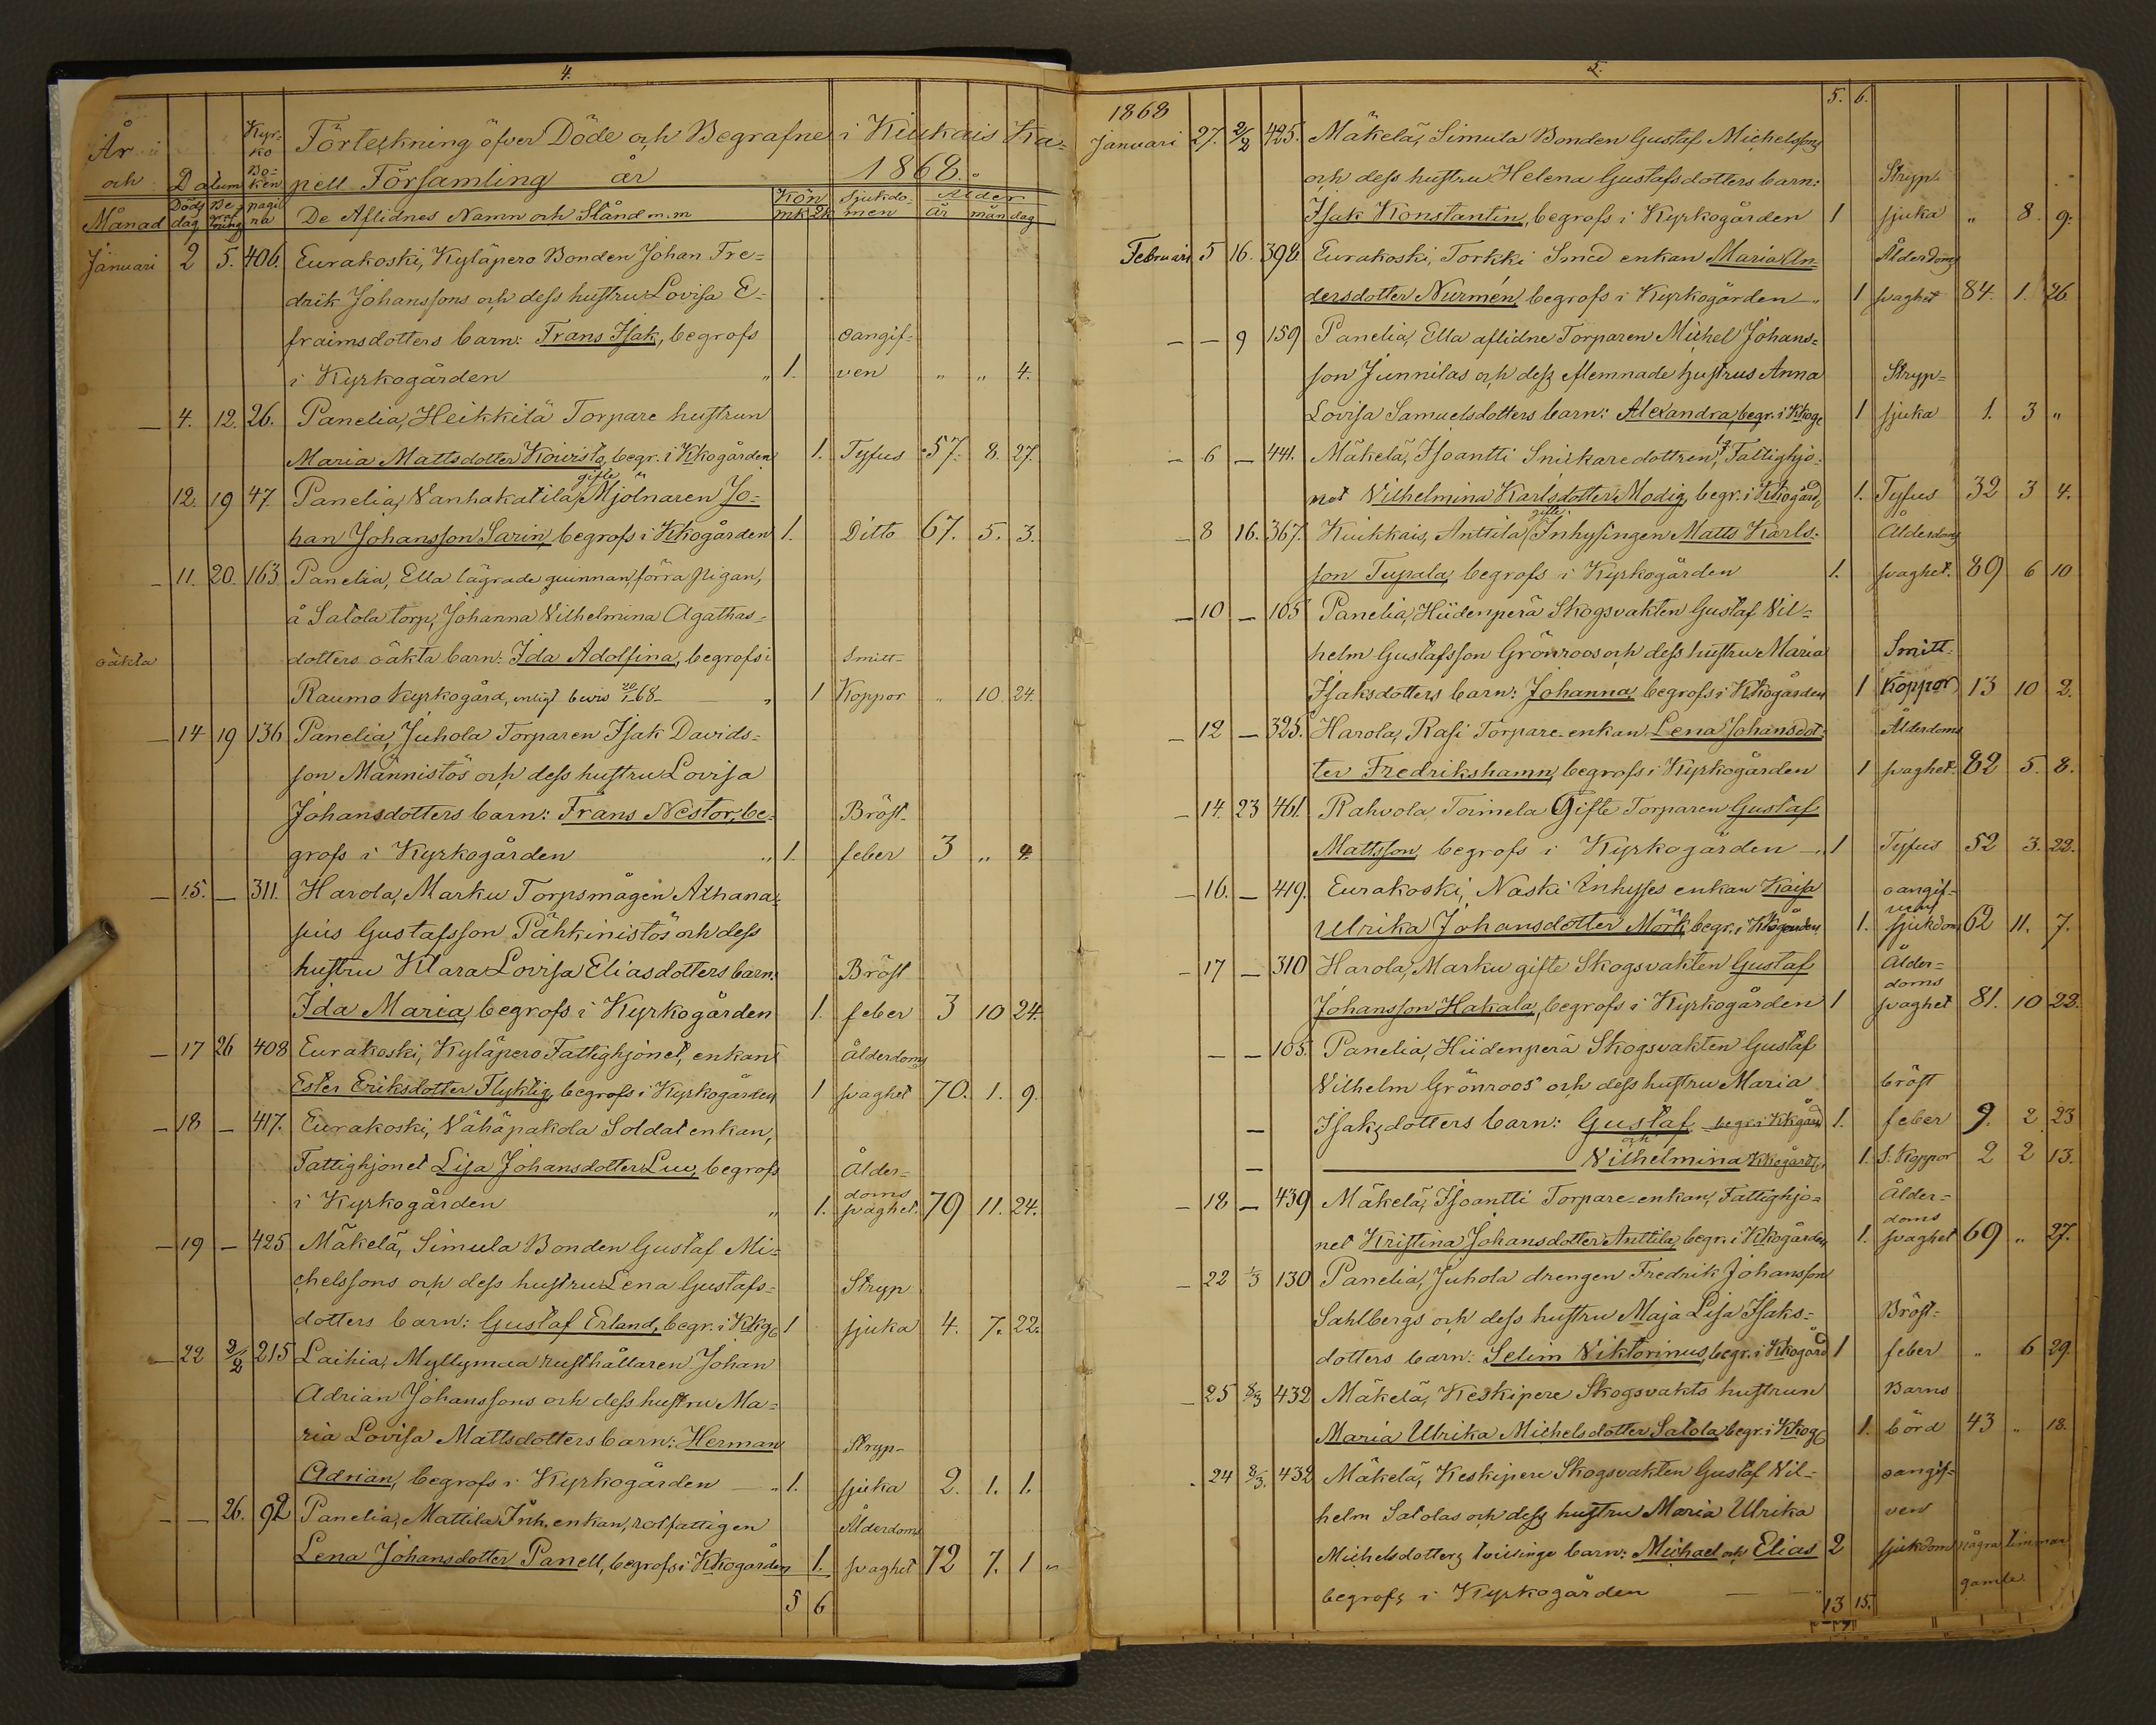 4.
År
och
Månad
Datum
Döds dag
Be= graf ning
Kyr= ko Bo= ken pagi na
Förteckning öfver Döde och Begrafne i Kiukais Ka=
pell Församling år 1868.
De Aflidnes Namn och Stånd m.m
Kön
mk qk
Sjukdo= men
Ålder
år mån dag
Januari 2 5. 406. Eurakoski, Kyläpero Bonden Johan Fre=
drik Johanssons och dess hustru Lovisa E=
fraimsdotters barn: Frans Isak, begrofs oangif=
i Kyrkogården " 1. ven " " 4.
— 4. 12. 26. Panelia, Heikkilä Torpare hustrun
Maria Mattsdotter Koivisto, begr. i Kkogården 1. Tyfus 57. 8. 27.
gifte
12. 19 47. Panelia, Vanhakatila, Mjölnaren Jo=
han Johansson Sarin, begrofs i Kkogården 1. Ditto 67. 5. 3.
— 11. 20. 163 Panelia, Ella lägrade quinnan, förra pigan,
å Salola torp, Johanna Vilhelmina Agathas=
oäkta dotters oäkta barn: Ida Adolfina, begrofs i Smitt=
Raumo Kyrkogård, enligt bevis 20/1 68 — " 1 Koppor " 10. 24.
— 14 19 136 Panelia, Juhola Torparen Isak Davids=
son Männistös och dess hustru Lovisa
Johansdotters barn: Frans Nestor, be= Bröst=
grofs i Kyrkogården " 1. feber 3 " 4.
— 15. — 311. Harola, Marku Torpsmågen Athana=
sius Gustafsson Pähkinistös och dess
hustru Klara Lovisa Eliasdotters barn: Bröst
Ida Maria, begrofs i Kyrkogården 1. feber 3 10 24.
— 17 26 408 Eurakoski, Kyläpero Fattighjonet, enkan Ålderdoms
Ester Eriksdotter Flyktig, begrofs i Kyrkogården 1 svaghet 70. 1. 9.
— 18 — 417. Eurakoski, Vähäpakola Soldat enkan,
Fattighjonet Lisa Johansdotter Luv, begrofs Ålder=
doms
i Kyrkogården " 1. svaghet. 79 11. 24.
— 19 — 425 Mäkelä, Simula Bonden Gustaf Mi=
chelssons och dess hustru Lena Gustafs= Stryp
dotters barn: Gustaf Erland, begr. i Kkg 1 sjuka 4. 7. 22.
— 22 2/2 215 Laihia, Myllymaa rusthållaren Johan
Adrian Johanssons och dess hustru Ma=
ria Lovisa Mattsdotters barn: Herman Stryp=
Adrian, begrofs i Kyrkogården — " 1. sjuka 2. 1. 1.
— — 26. 92 Panelia, Mattila Inh. enkan, rotfattigen Ålderdoms
Lena Johansdotter Panell, begrofs i Kkogården 1. svaghet 72 7. 1 "
5 6
5.
1868 5. 6.
Januari 27. 2/2 425. Mäkelä, Simula Bonden Gustaf Michelssons
och dess hustru Helena Gustafsdotters barn: Stryp=
Isak Konstantin, begrofs i Kyrkogården 1 sjuka " 8. 9.
Februari 5 16. 392. Eurakoski, Torkki Smed enkan Maria An= Ålderdoms
dersdotter Nurmén, begrofs i Kyrkogården — " 1 svaghet 84. 1. 26
— — 9 159 Panelia, Ella aflidne Torparen Michel Johans=
son Junnilas och dess eflemnade hustrus Anna Stryp=
Lovisa Samuelsdotters barn: Alexandra, begr. i Kkog. 1 sjuka 1. 3 "
— 6 — 441. Mäkelä, Isoantti Snickaredottren, Fattighjo=
net Vilhelmina Karlsdotter Modig, begr. i Kkogård, 1. Tyfus 32 3 4.
gifte
— 8 16. 367. Kiukkais, Anttila, Inhysingen Matts Karls= Ålderdoms
son Tupala, begrofs i Kyrkogården 1. svaghet. 89 6 10
— 10 — 105 Panelia, Hiidenperä Skogsvakten Gustaf Vil=
helm Gustafsson Grönroos och dess hustru Maria Smitt=
Isaksdotters barn: Johanna, begrofs i Kkogården 1 Koppor 13 10 2.
— 12 — 325. Harola, Rasi Torpare-enkan Lena Johansdot= Ålderdoms
ter Fredrikshamn, begrofs i Kyrkogården 1 svaghet. 82 5. 8.
— 14. 23 461. Rahvola, Toimela Gifte Torparen Gustaf
Mattsson, begrofs i Kyrkogården — " 1 Tyfus 52 3. 22.
— 16. — 419. Eurakoski, Naski Inhyses enkan Kaisa oangif=
ven
Ulrika Johansdotter Mörk, begr. i Kkogården 1. sjukdom 62 11. 7.
— 17 — 310 Harola, Marku gifte Skogsvakten Gustaf Ålder=
doms
Johansson Hakala, begrofs i Kyrkogården 1 svaghet 81. 10 22.
— — 105. Panelia, Hiidenperä Skogsvakten Gustaf
Vilhelm Grönroos och dess hustru Maria bröst
— Isaksdotters barn: Gustaf begr. i Kkgård 1. feber 9. 2. 23
och
— Vilhelmina Kkogård, 1. S. Koppor 2 2 13.
— 18 — 439 Mäkelä, Isoantti Torpare-enkan, Fattighjo= Ålder=
doms
net Kristina Johansdotter Anttila, begr. i Kkogården 1. svaghet 69 " 27.
— 22 1/3 130 Panelia, Juhola drengen Fredrik Johansson
Sahlbergs och dess hustru Maja Lisa Isaks= Bröst=
dotters barn: Selim Viktorinus, begr. i Kkogård 1 feber " 6 29.
— 25 8/3 432 Mäkelä, Keskipere Skogsvakts hustrun Barns
Maria Ulrika Michelsdotter Salola begr. i Kkog 1. börd 43 " 18.
. 24 8/3. 432 Mäkelä, Keskipere Skogsvakten Gustaf Vil= oangif=
helm Salolas och dess hustru Maria Ulrika ven
Michelsdotters tvillinge barn: Michael och Elias 2 sjukdom några timmar
begrofs i Kyrkogården — — " gamle
13 15.